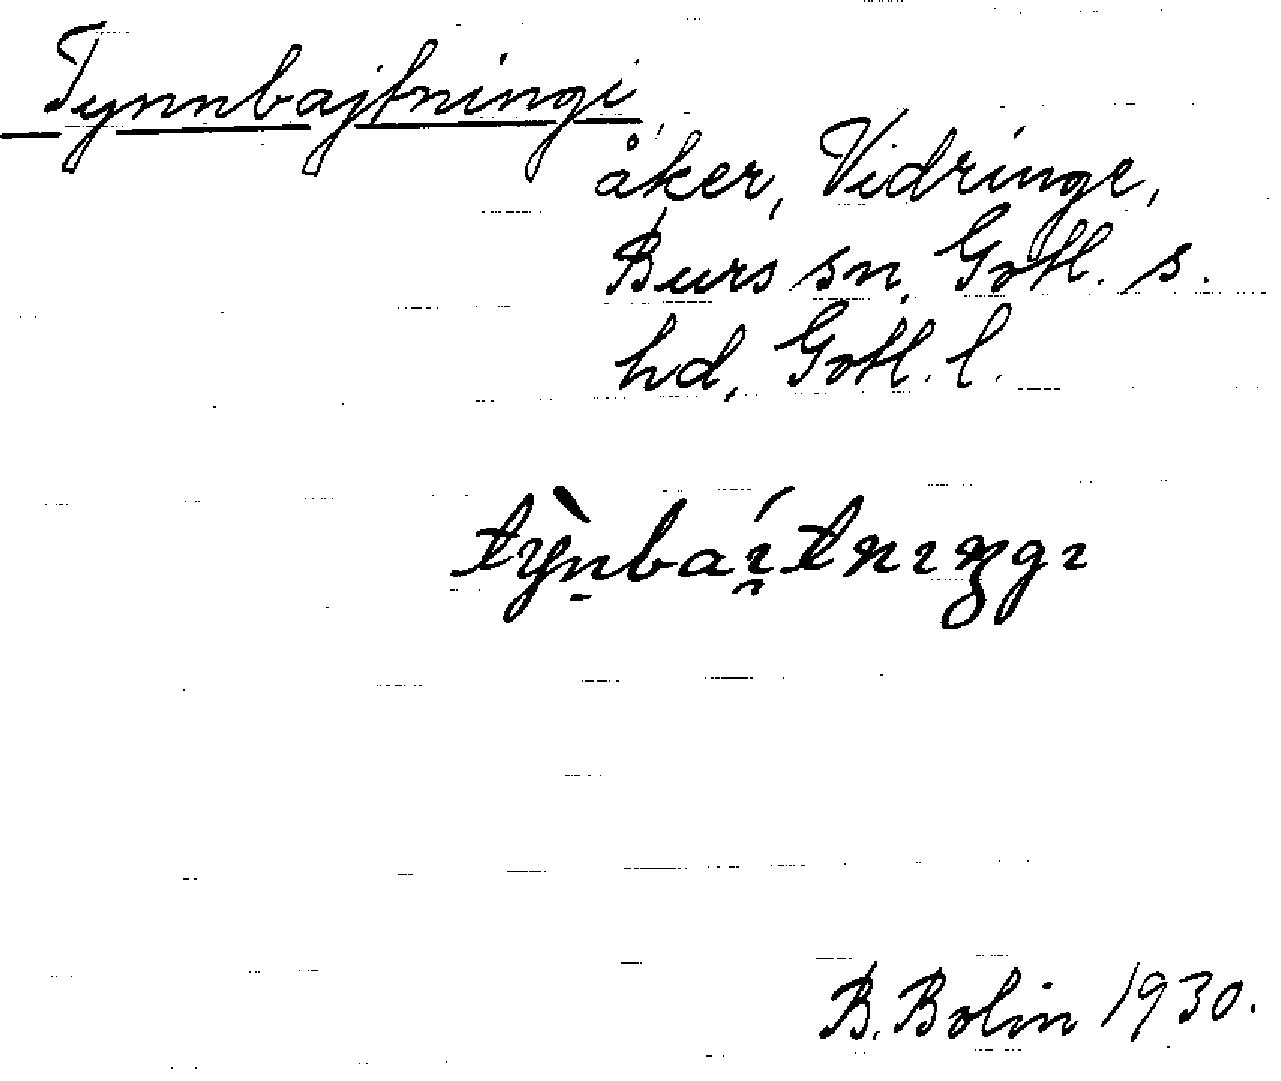 Tynnbajtningi,
åker, Vidringe,
Burs sn, Gotl. s.
hd, Gotl. l.
tỳn̠baı̯́tnıŋgı
B. Bolin 1930.